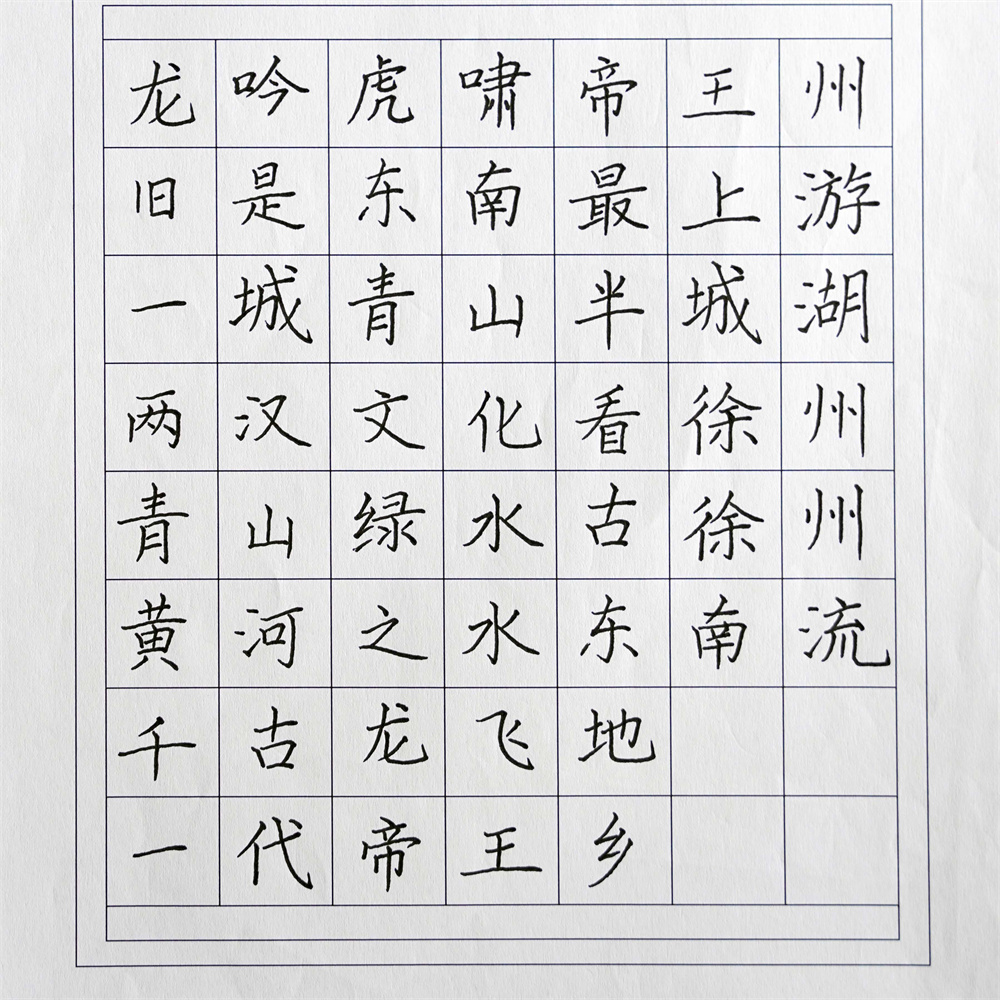 龙吟虎啸帝王州
旧是东南最上游
一城青山半城湖
两汉文化看徐州
青山绿水古徐州
黄河之水东南流
千古龙飞地
一代帝王乡